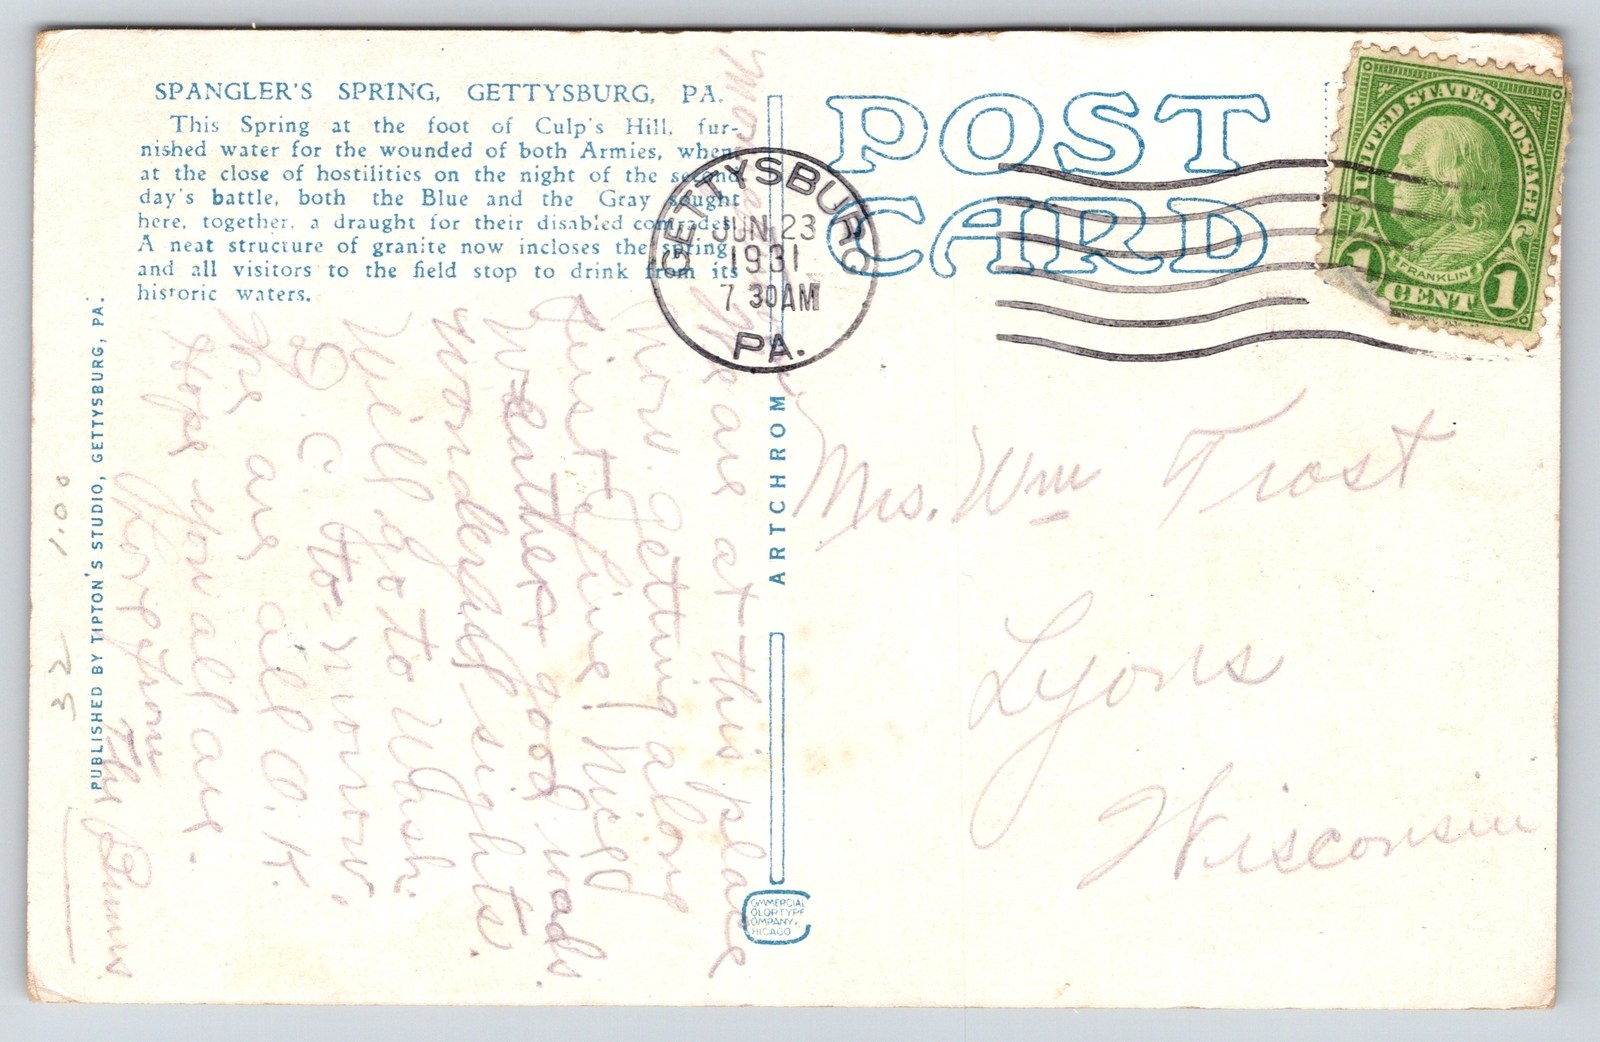 SPANGLER'S SPRING, GETTYSBURG, PA.
This Spring at the foot of Culp's Hill, fur-
nished water for the wounded of both Armies, when
at the close of hostilities on the night of the second
day's battle, both the Blue and the Gray sought
here, together, a draught for their disabled comrades.
A neat structure of granite now incloses the spring,
and all visitors to the field stop to drink from its
historic waters.
PUBLISHED BY TIPTON'S STUDIO, GETTYSBURG, PA.
1.00
32
POST
CARD
GETTYSBURG
JUN 23
1931
7 30 AM
PA.
UNITED STATES POSTAGE
FRANKLIN
1 CENT 1
ARTCHROM
COMMERCIAL
COLORTYPE
COMPANY,
CHICAGO
We are at this place
now. getting along
first fine! Nice
Weather & good roads.
Wonderful sights.
Will go to Wash.
D. C. to-morrow.
We are all O. K.
Hope you all are.
Love from
The Bunns.
Mrs. Wm Trost
Lyons
Wisconsin